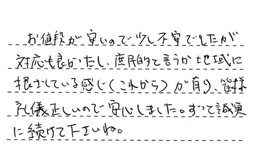 お値段が安いので少し不安でしたが
対応も良かったし、庶民的と言うか地域に
根ざしている感じ(これから)が有り、皆様
礼儀正しいので安心しました。ずっと誠実
に続けて下さいね。